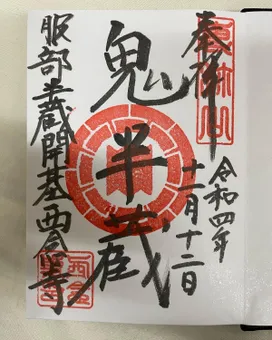 奉拝
令和四年
十一月十二日
鬼半蔵
服部半蔵開基西念寺